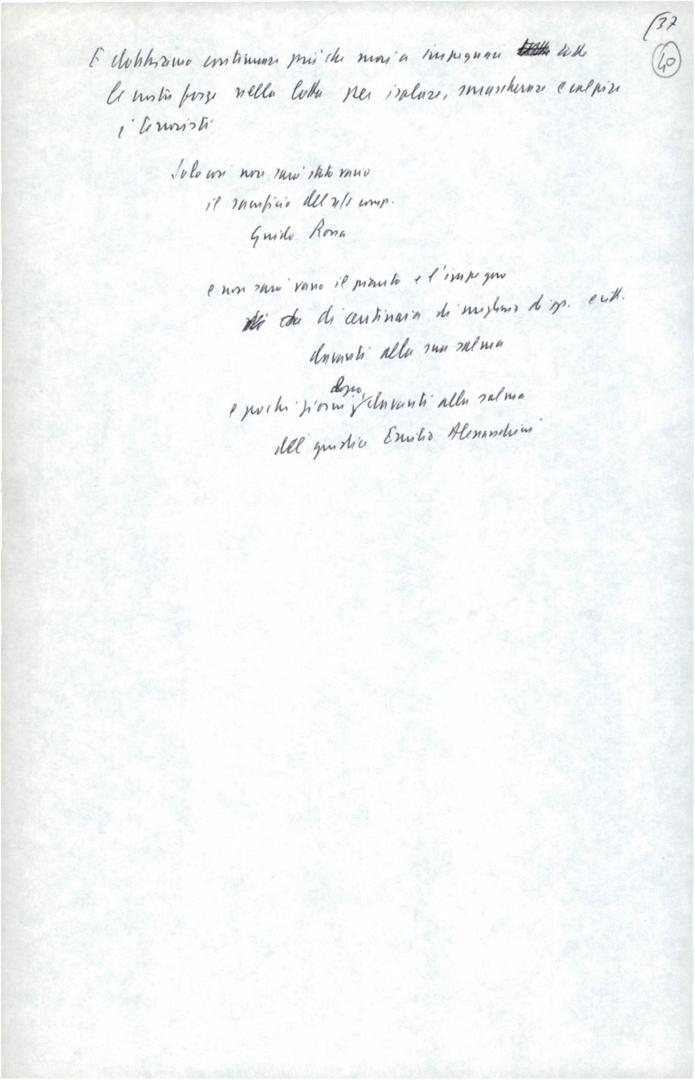 37
40
E dobbiamo continuare più che mai a impegnare tutte
le nostre forze nella lotta per isolare, smascherare e colpire
i terroristi
Solo così non sarà stato vano
il sacrificio del n/s comp.
Guido Rossa
e non sarà vano il pianto e l'impegno
di centinaia di migliaia di op. e citt.
davanti alla sua salma
dopo
e pochi giorni davanti alla salma
del giudice Emilio Alessandrini